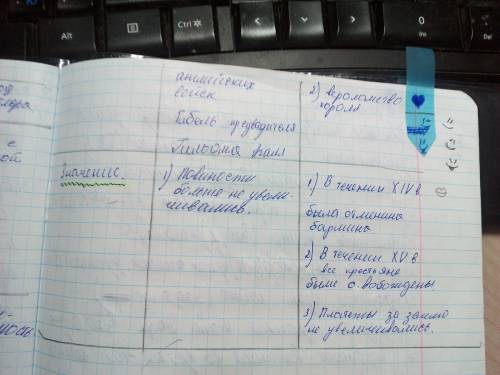 Alt
Ctrl
0
Ins
английских
войск
Гибель предводителя
Гильома Каля
2) вероломство
короля
Значение.
1) Повиности
больше не увели-
чивались.
1) В течении XIV в
была отминина
барщина
2) В течении XV в
все крестьяне
были освобождены
3) Платежи за землю
не увеличивались.